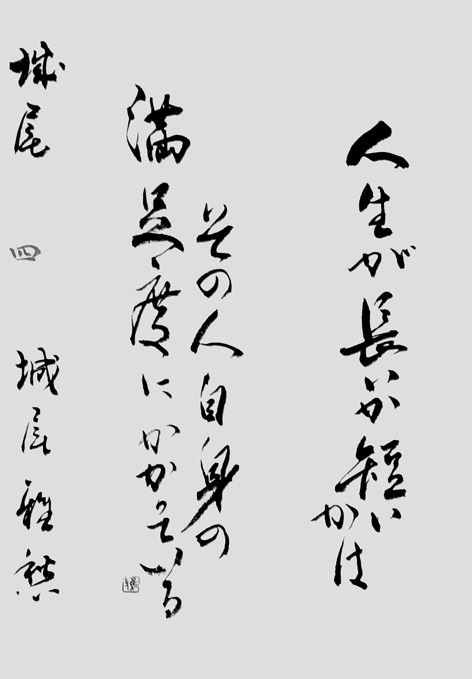 人生が長いか短いかは
その人自身の
満足度にかかっている
城尾
四
城尾雅愁